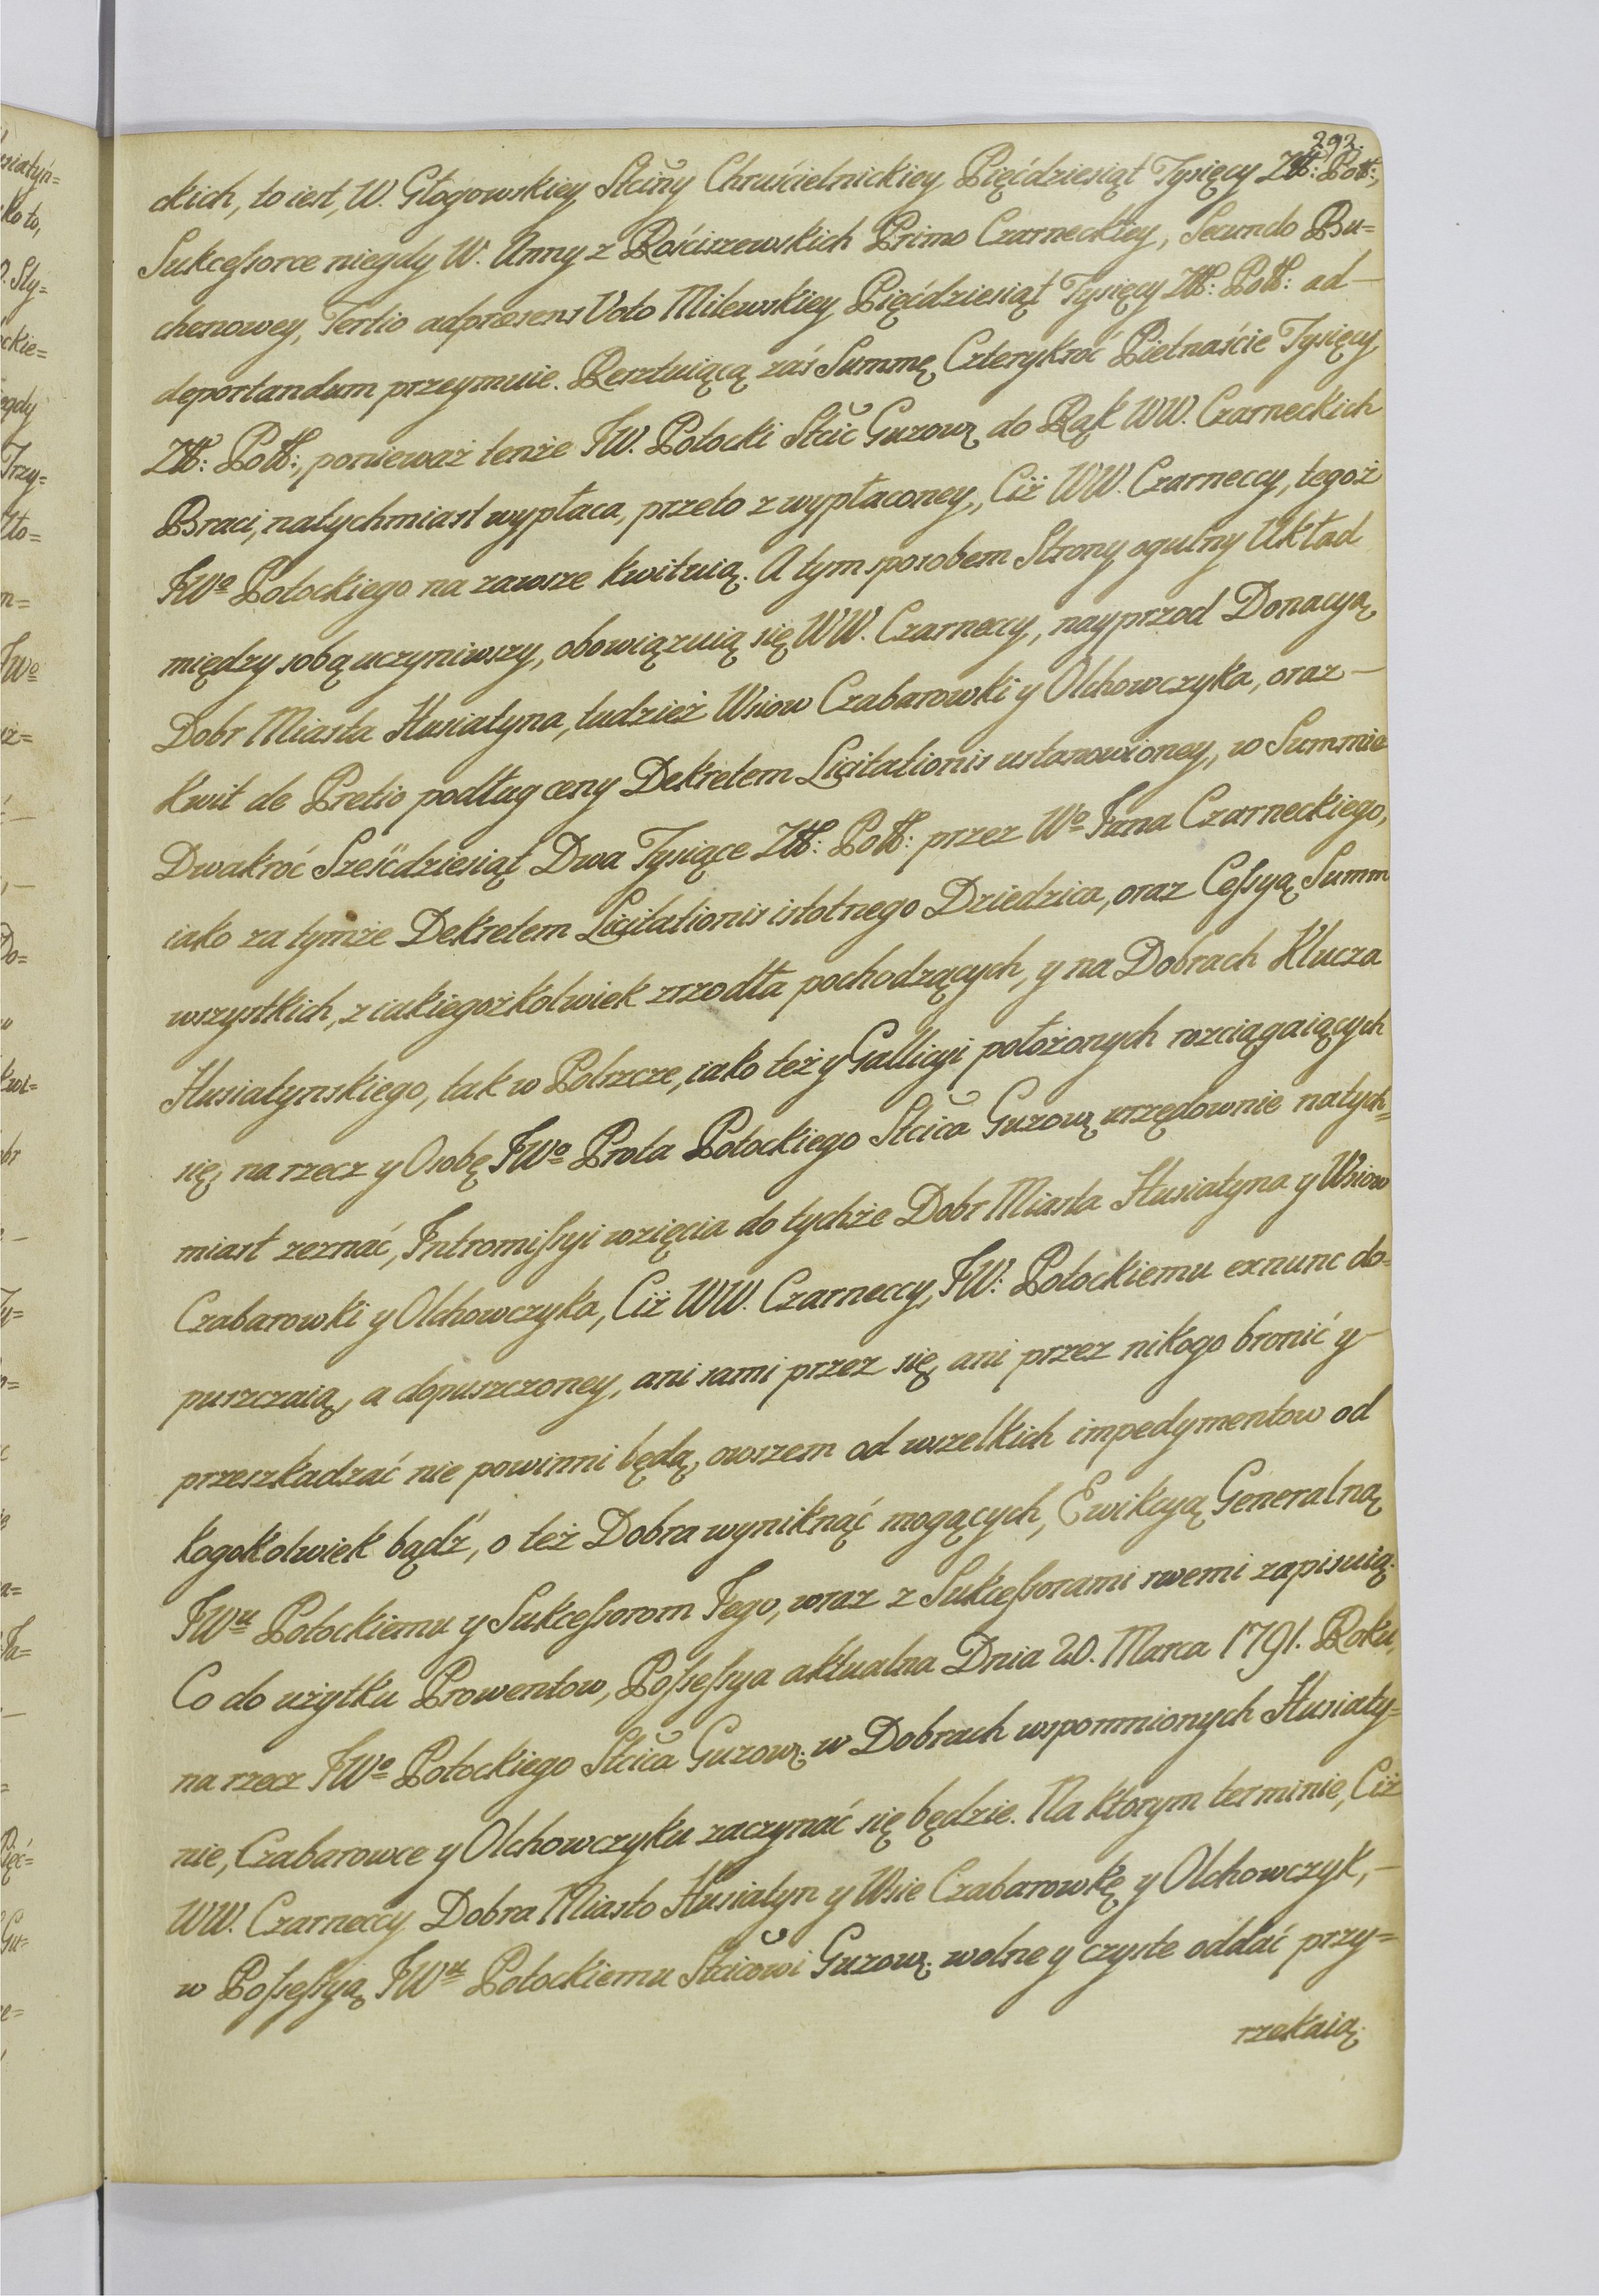 292.
ckich, to iest, W. Głogowskiey Stciny Chruścielnickiey Pięćdziesiąt Tysięcy Złł: Poll:,
Sukcessorce niegdy W. Anny z Rościszewskich Primo Czarneckiey, Secundo Bu=
chenowey, Tertio adpræsens Voto Milewskiey Pięćdziesiąt Tysięcy Złł: Poll: ad—
deportandum przeymuie. Resztuiącą zaś Summę Czterykroć Pietnaście Tysięcy
Złł: Poll:, ponieważ tenże JW. Potocki Stcic Guzow: do Rąk WW. Czarneckich
Braci, natychmiast wypłaca, przeto z wypłaconey, Ciż WW. Czarneccy, tegoż
JWo Potockiego na zawsze kwituią. A tym sposobem Strony ogulny Układ
między sobą uczyniwszy, obowiązuią się WW. Czarneccy, nayprzod Donacyą
Dobr Miasta Husiatyna, tudzież Wsiow Czabarowki y Olchowczyka, oraz—
kwit de Pretio podług ceny Dekretem Licitationis ustanowioney, w Summie
Dwakroć Sześćdziesiąt Dwa Tysiące Złł: Poll: przez Wo Jana Czarneckiego,
iako za tymże Dekretem Licitationis istotnego Dziedzica, oraz Cessyą Summ
wszystkich, z iakiegożkolwiek zrzodła pochodzących, y na Dobrach Klucza
Husiatynskiego, tak w Polszcze, iako też y Gallicyi położonych rozciągaiących
się, na rzecz y Osobę JWo Prota Potockiego Stcica Guzow: urzędownie natych=
miast zeznać, Intromissyi wzięcia do tychże Dobr Miasta Husiatyna y Wsiow
Czabarowki y Olchowczyka, Ciż WW. Czarneccy, JW: Potockiemu exnunc do=
puszczaią, a dopuszczoney, ani sami przez się, ani przez nikogo bronić y—
przeszkadzać nie powinni będą, owszem od wszelkich impedymentow od
kogokolwiek bądź, o też Dobra wyniknąć mogących, Ewikcyą Generalną
JWu Potockiemu y Sukcessorom Jego, wraz z Sukcessorami swemi zapisuią.
Co do użytku Prowentow, Possessya aktualna Dnia 20. Marca 1791. Roku,
na rzecz JWo Potockiego Stcica Guzow: w Dobrach wspomnionych Husiaty=
nie, Czabarowce y Olchowczyku zaczynać się będzie. Na ktorym terminie, Ciż
WW. Czarneccy Dobra Miasto Husiatyn y Wsie Czabarowkę y Olchowczyk,—
w Possessyą JWu Potockiemu Stcicowi Guzow: wolne y czyste oddać przy=
rzekaią.